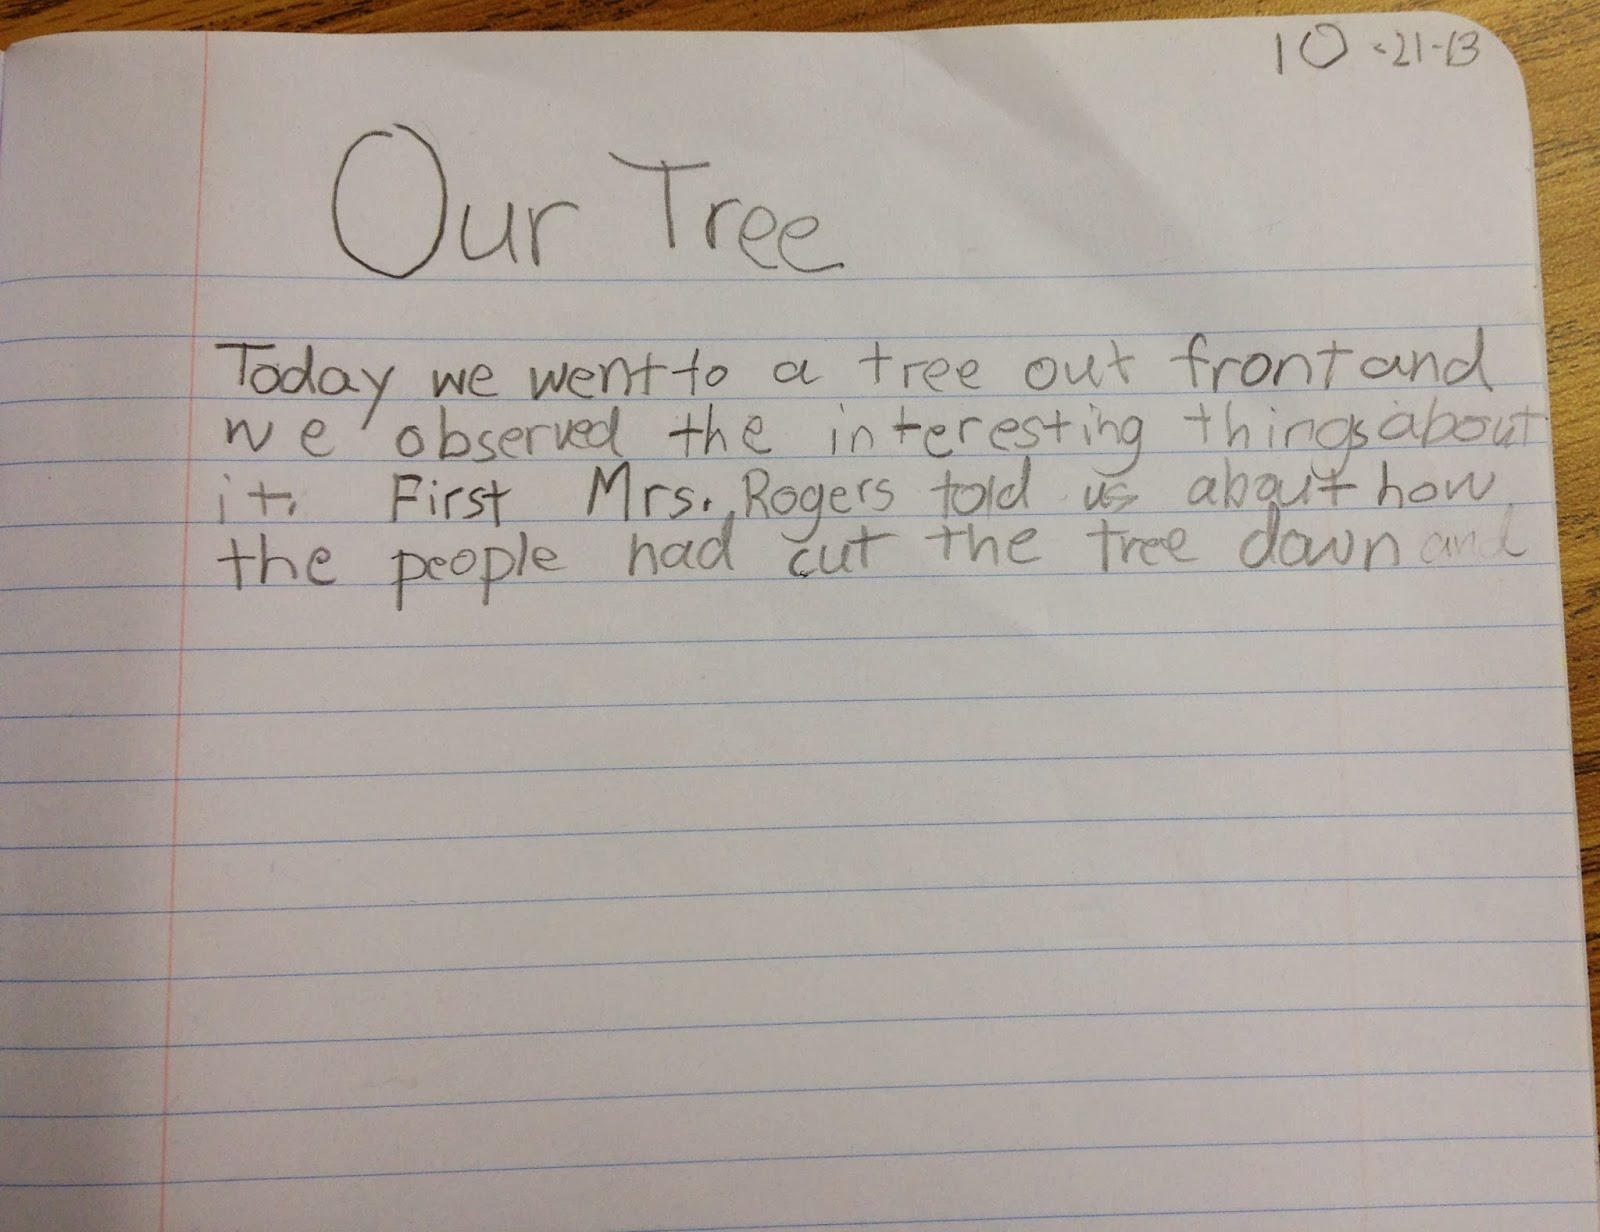 10-21-13
Our Tree
Today we went to a tree out front and
we observed the interesting things about
it. First Mrs. Rogers told us about how
the people had cut the tree down and